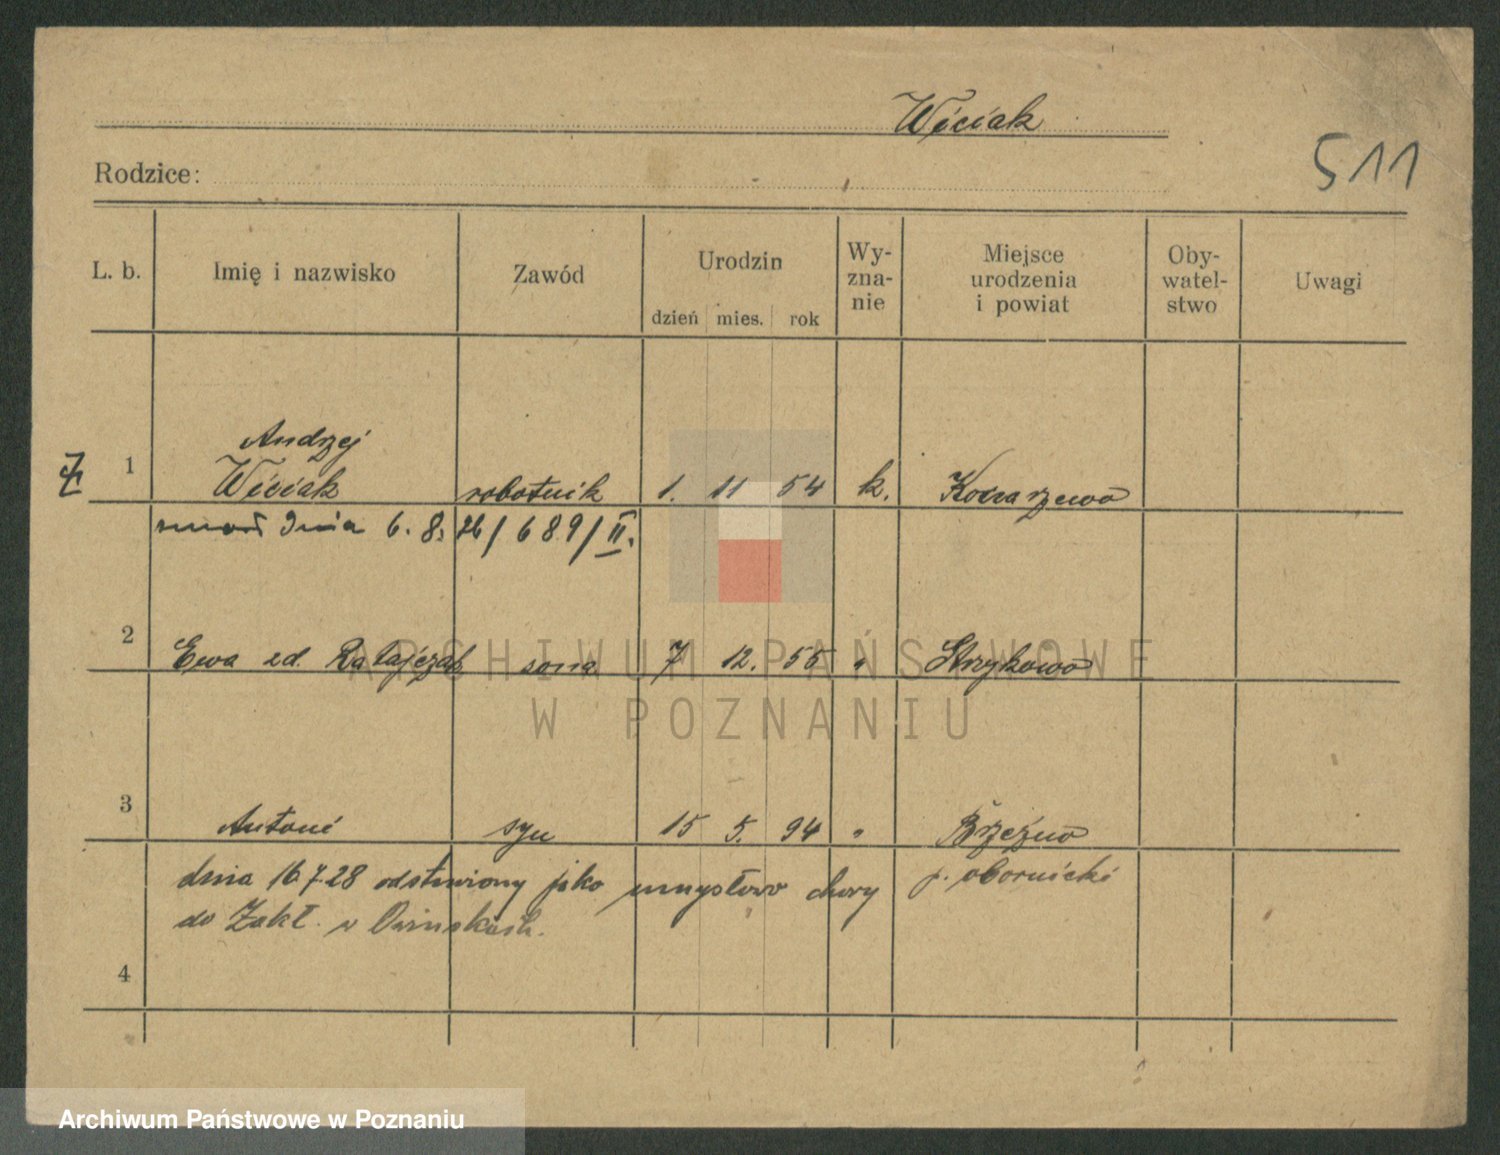 Wiciak
511
Rodzice:
L. b. Imię i nazwisko Zawód Urodzin dzień mies. rok Wy-zna-nie Miejsce urodzenia i powiat Oby-watel-stwo Uwagi
Andrzej
1 Wiciak robotnik 1. 11 54 k. Konarzewo
zmarł dnia 6. 8. 26/689/II.
2 Ewa zd. Ratajczak żona 7 12. 55 " Strzykowo
3 Antoni syn 15 5. 94 " Brzeźno
p. obornicki
dnia 16.7.28 odstawiony jako umysłowo chory
do Zakł. w Owinskach.
4
ARCHIWUM PAŃSTWOWE
W POZNANIU
Archiwum Państwowe w Poznaniu